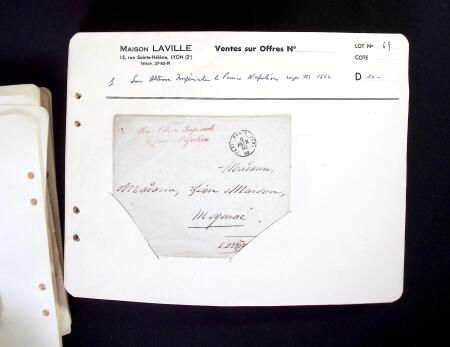 MAISON LAVILLE Ventes sur Offres N° LOT N° 69
15, rue Sainte-Hélène, LYON (2e) COTE
D 10-
1 Son Altesse Impériale le Prince Napoléon 1862
Son Altesse Impériale
le Prince Napoléon
PARIS
Madame,
Madame, Léon Maison,
Meymac